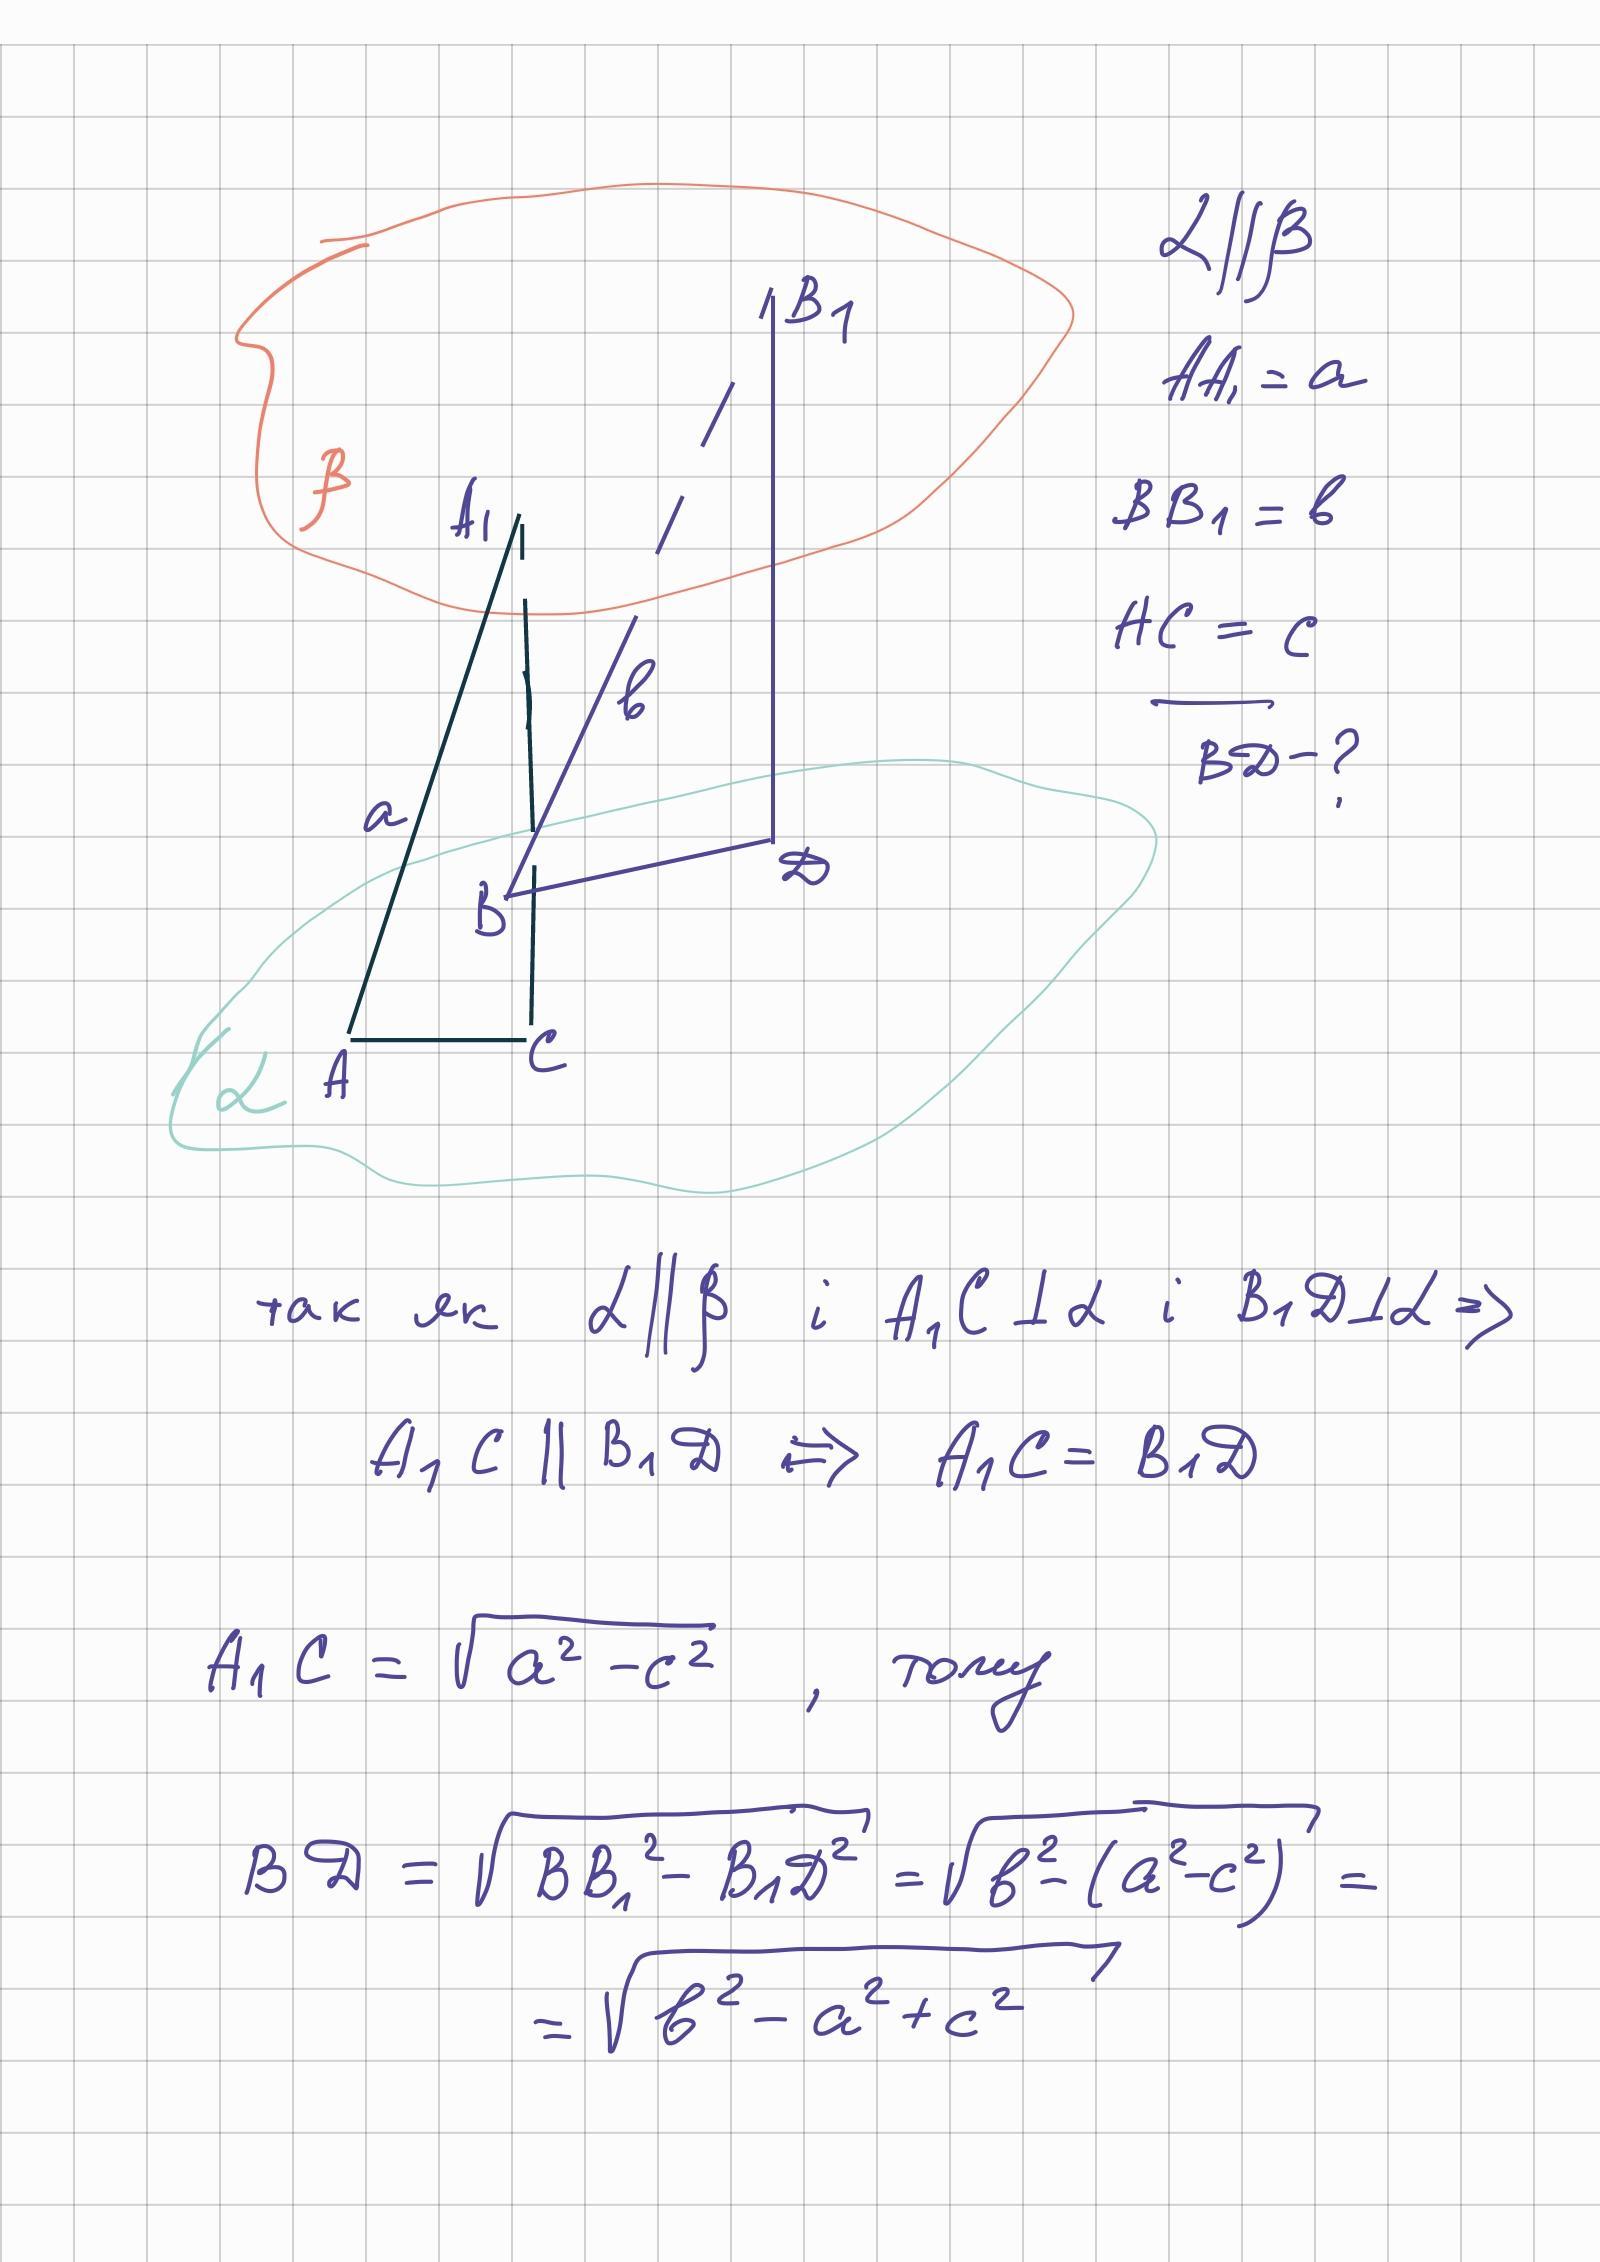 α || β
AA₁ = a
BB₁ = b
AC = c
BD - ?
β
B₁
A₁
b
a
B
D
A
C
α
так як α || β і A₁C ⊥ α і B₁D ⊥ α =>
A₁C || B₁D => A₁C = B₁D
A₁C = √(a² - c²) , тому
BD = √(BB₁² - B₁D²) = √(b² - (a² - c²)) =
= √(b² - a² + c²)